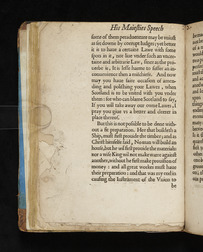 His Maiesties Speech
sorce of them peraduenture may be
as set downe by corrupt Iudges; yet better
it is to haue a certaine Law with some
spots in it, nor liue vnder such an vncer-
taine and arbitrarie Law, since as the pro-
uerbe is, It is lesse harme to suffer an in-
conuenience then a mischiefe. And now
may you haue faire occasion of amen-
ding and polishing your Lawes, when
Scotland is to be vnited with you vnder
them: for who can blame Scotland to say,
If you will take away our owne Lawes, I
pray you giue vs a better and cleerer in
place thereof.
But this is not possible to be done with-
out a fit preparation. Hee that buildeth a
Ship, must first prouide the timber; and as
Christ himselfe said, No man will build an
house, but he will first prouide the materials:
nor a wise King wil not make warre against
another, without he first make prouision of
money: and all great workes must haue
their preparation: and that was my end in
causing the Instrument of the Vnion to
be